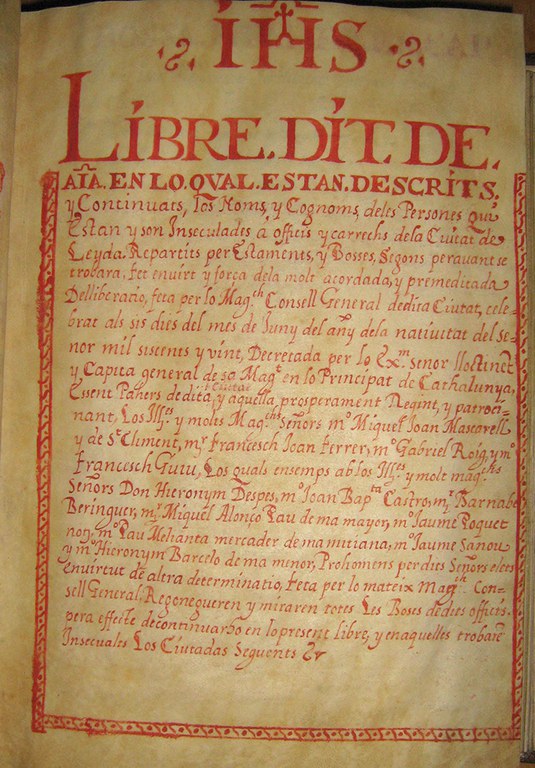 IHS
LIBRE. DIT. DE.
AÑA. EN LO. QVAL. ESTAN. DESCRITS,
y Continuats, los Noms, y Cognoms, deles Persones qui
Estan y son Inseculades a officis y carrechs dela Ciutat de
Leyda. Repartits per Estaments, y Bosses, Segons peravant se
trobara, fet envirt y força dela molt acordada, y premeditada
Delliberacio, feta per lo Mag.ch Consell General dedita Ciutat, cele-
brat als sis dies del mes de Juny del any dela nativitat del se-
nor mil siscents y vint, Decretada per lo Ex.m Senor lloctinēt
y Capita general de sa Mag.t en lo Principat de Cathalunya,
Essent Pahers dedita Ciutat, y aquella, prosperament Regint, y patroci-
nant, Los Ill.es y molts Mag.chs Señors m.o Miquel Joan Mascarell
y de S.t Climent, m.r Francesch Joan Ferrer, m.o Gabriel Roig, y m.o
Francesch Guiu, Los quals ensemps ab los Ill.es y molt mag.chs
Señors Don Hieronym Despes, m.o Joan Bap.ta Castro, m.r Barnabe
Beringuer, m.r Miquel Alonço Pau de ma mayor, m.o Jaume Poquet
noy, m.o Pau Melianta mercader de ma mitiana, m.o Jaume Sanou
y m.o Hieronym Barcelo de ma menor, Prohomens per dits Señors elets
Envirtut de altra determinatio, feta per lo mateix Mag.ch Con-
sell General, Regonegueren y miraren totes Les Boses de dets officis
pera effecte de continuarho en lo present libre, y en aquelles trobarē
Insecualts Los Ciutadas Seguents &r